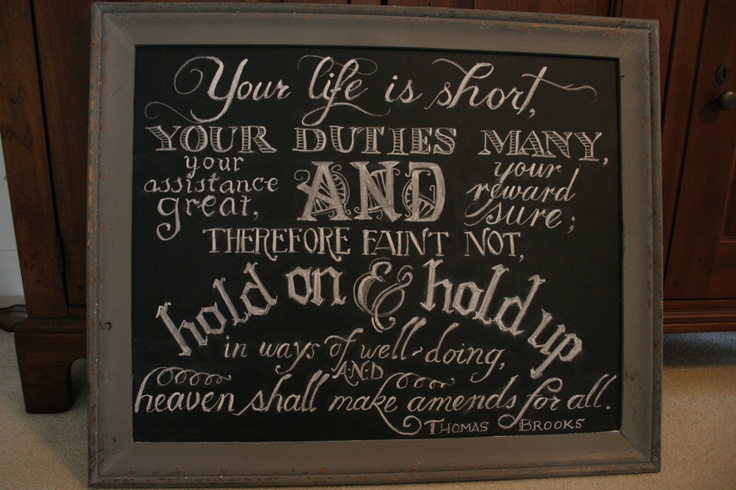 Your life is short,
YOUR DUTIES MANY,
your assistance great,
AND
your reward sure;
THEREFORE FAINT NOT,
hold on & hold up
in ways of well-doing,
AND
heaven shall make amends for all.
THOMAS BROOKS